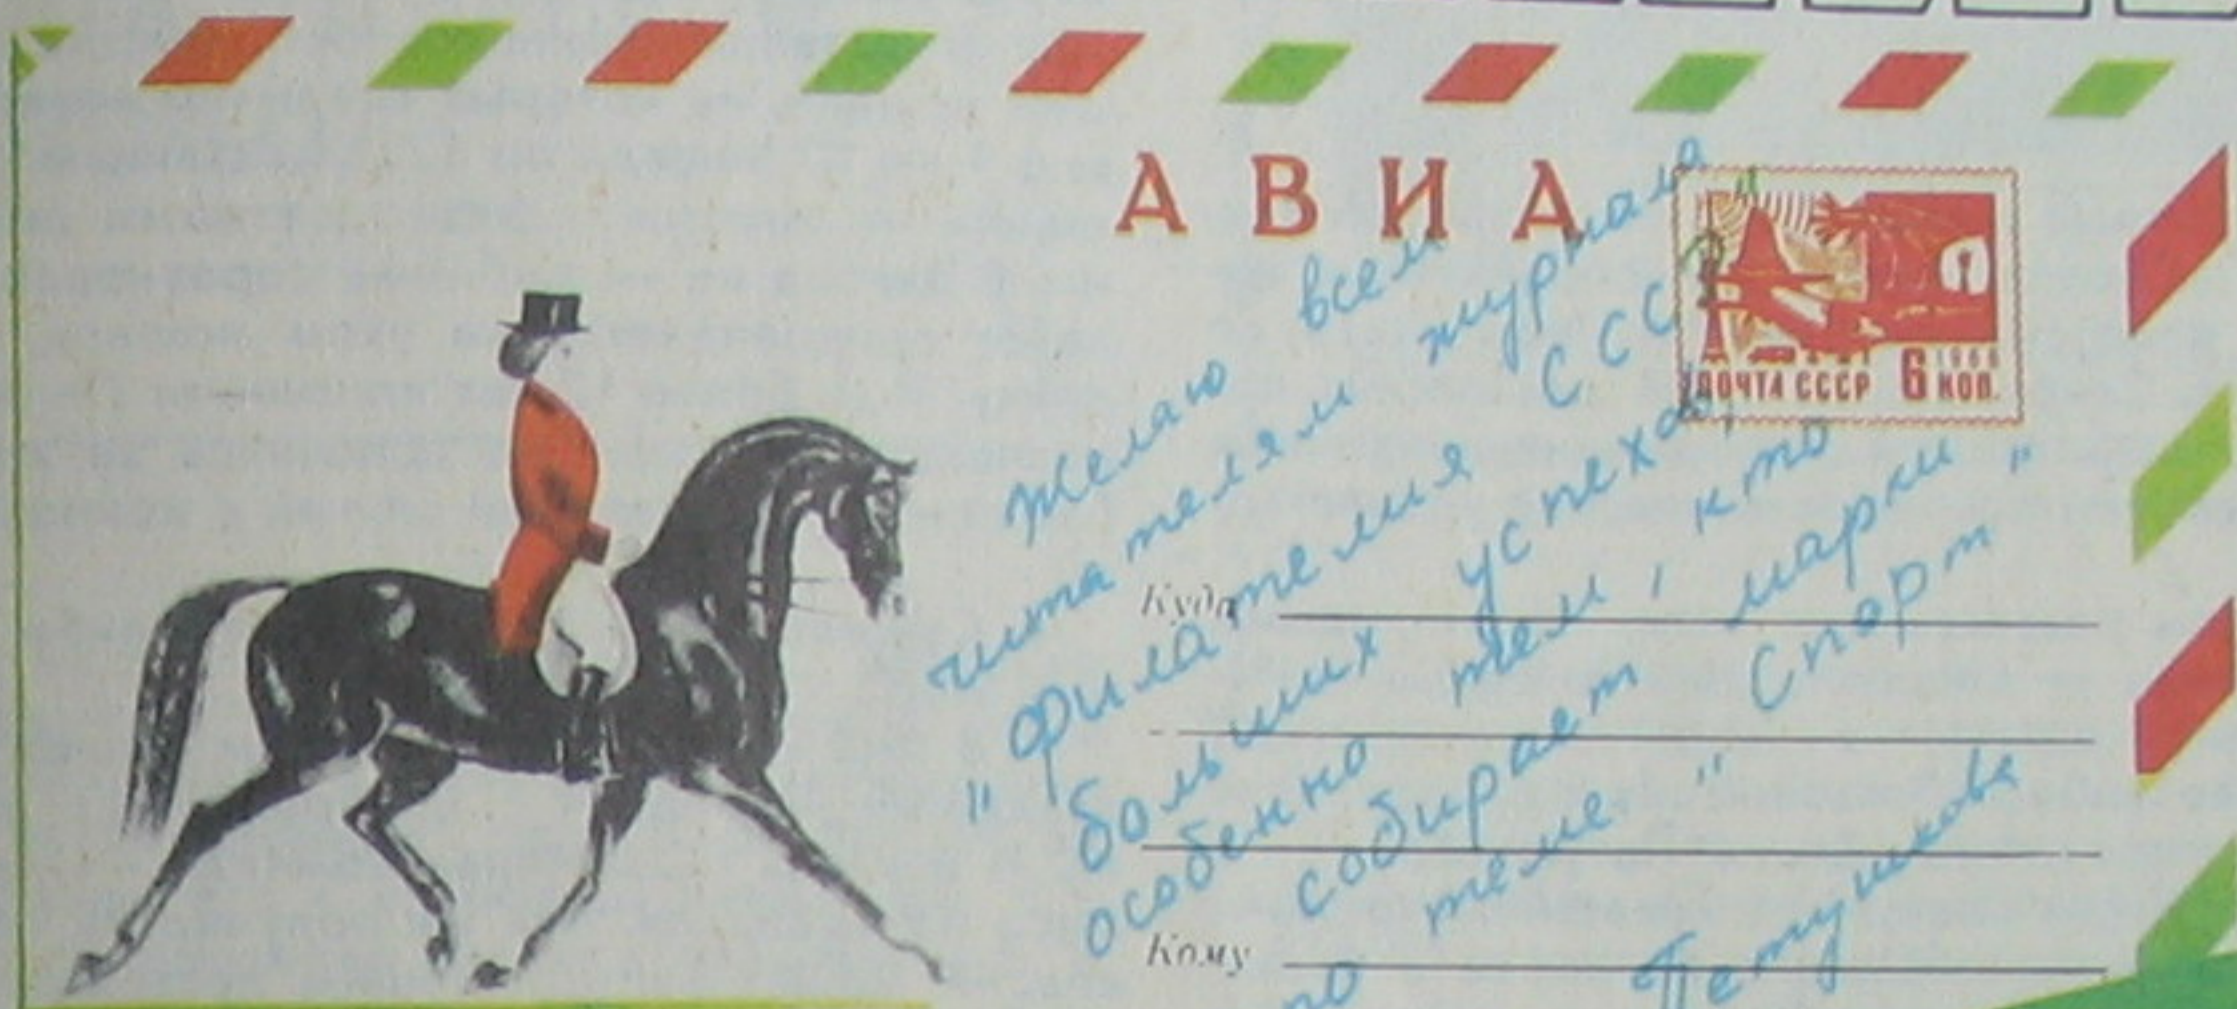 АВИА
1966
ПОЧТА СССР 6 КОП.
Желаю всем
читателям журнала
"Филателия СССР"
больших успехов,
особенно тем, кто
собирает марки
по теме "Спорт"
Петушкова
Куда
Кому